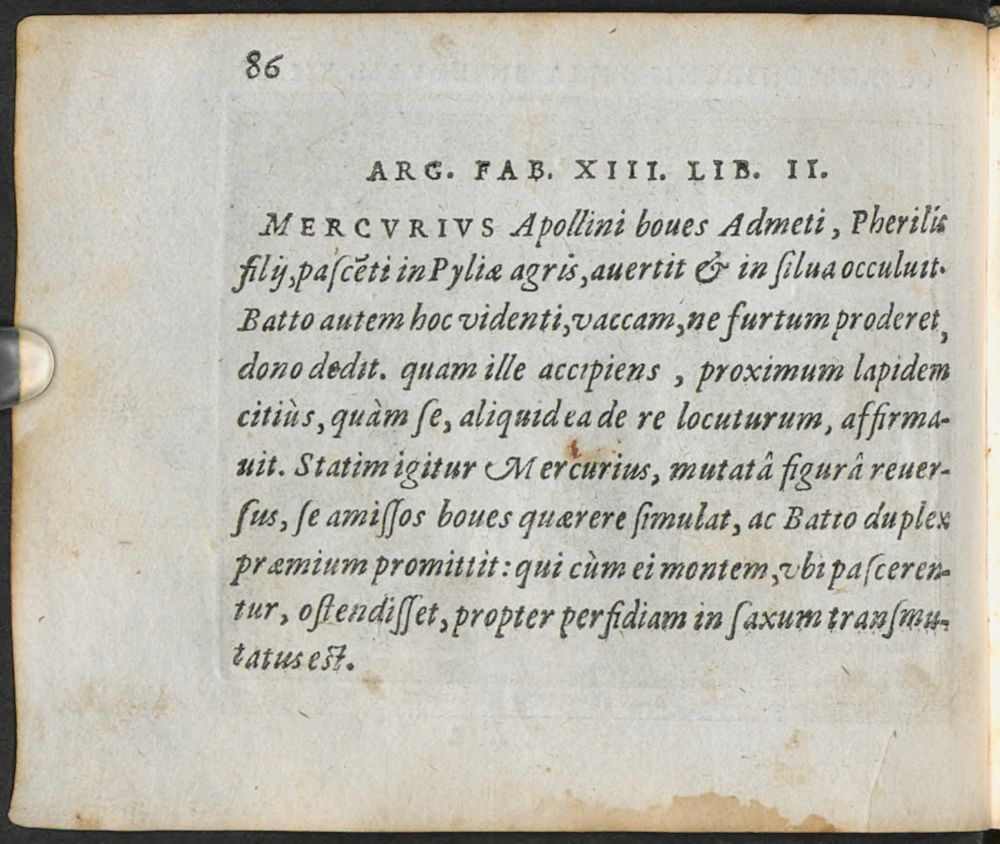 86
ARG. FAB. XIII. LIB. II.
MERCVRIVS Apollini boues Admeti, Pherilis
filij, paſcẽti in Pyliæ agris, auertit & in ſilua occuluit.
Batto autem hoc videnti, vaccam, ne furtum proderet,
dono dedit. quam ille accipiens, proximum lapidem
citiùs, quàm ſe, aliquid ea de re locuturum, affirma-
uit. Statim igitur Mercurius, mutatâ figurâ reuer-
ſus, ſe amiſſos boues quærere ſimulat, ac Batto duplex
præmium promittit: qui cùm ei montem, vbi paſceren-
tur, oſtendiſſet, propter perfidiam in ſaxum tranſmu-
tatus eſt.